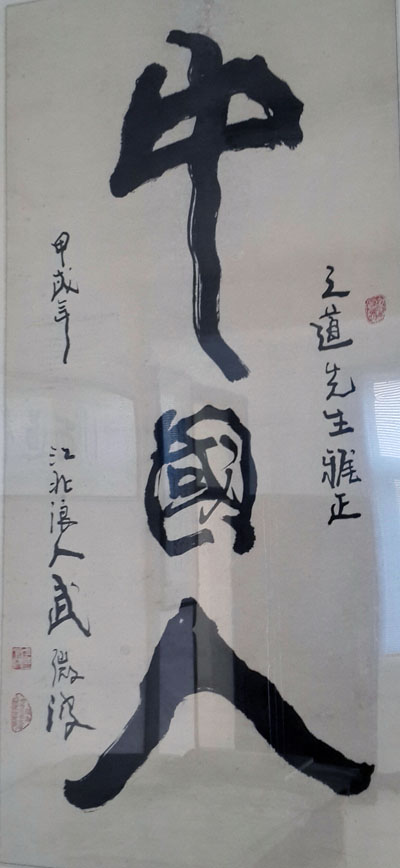 王道先生雅正
中國人
甲戌年
江北浪人武微波